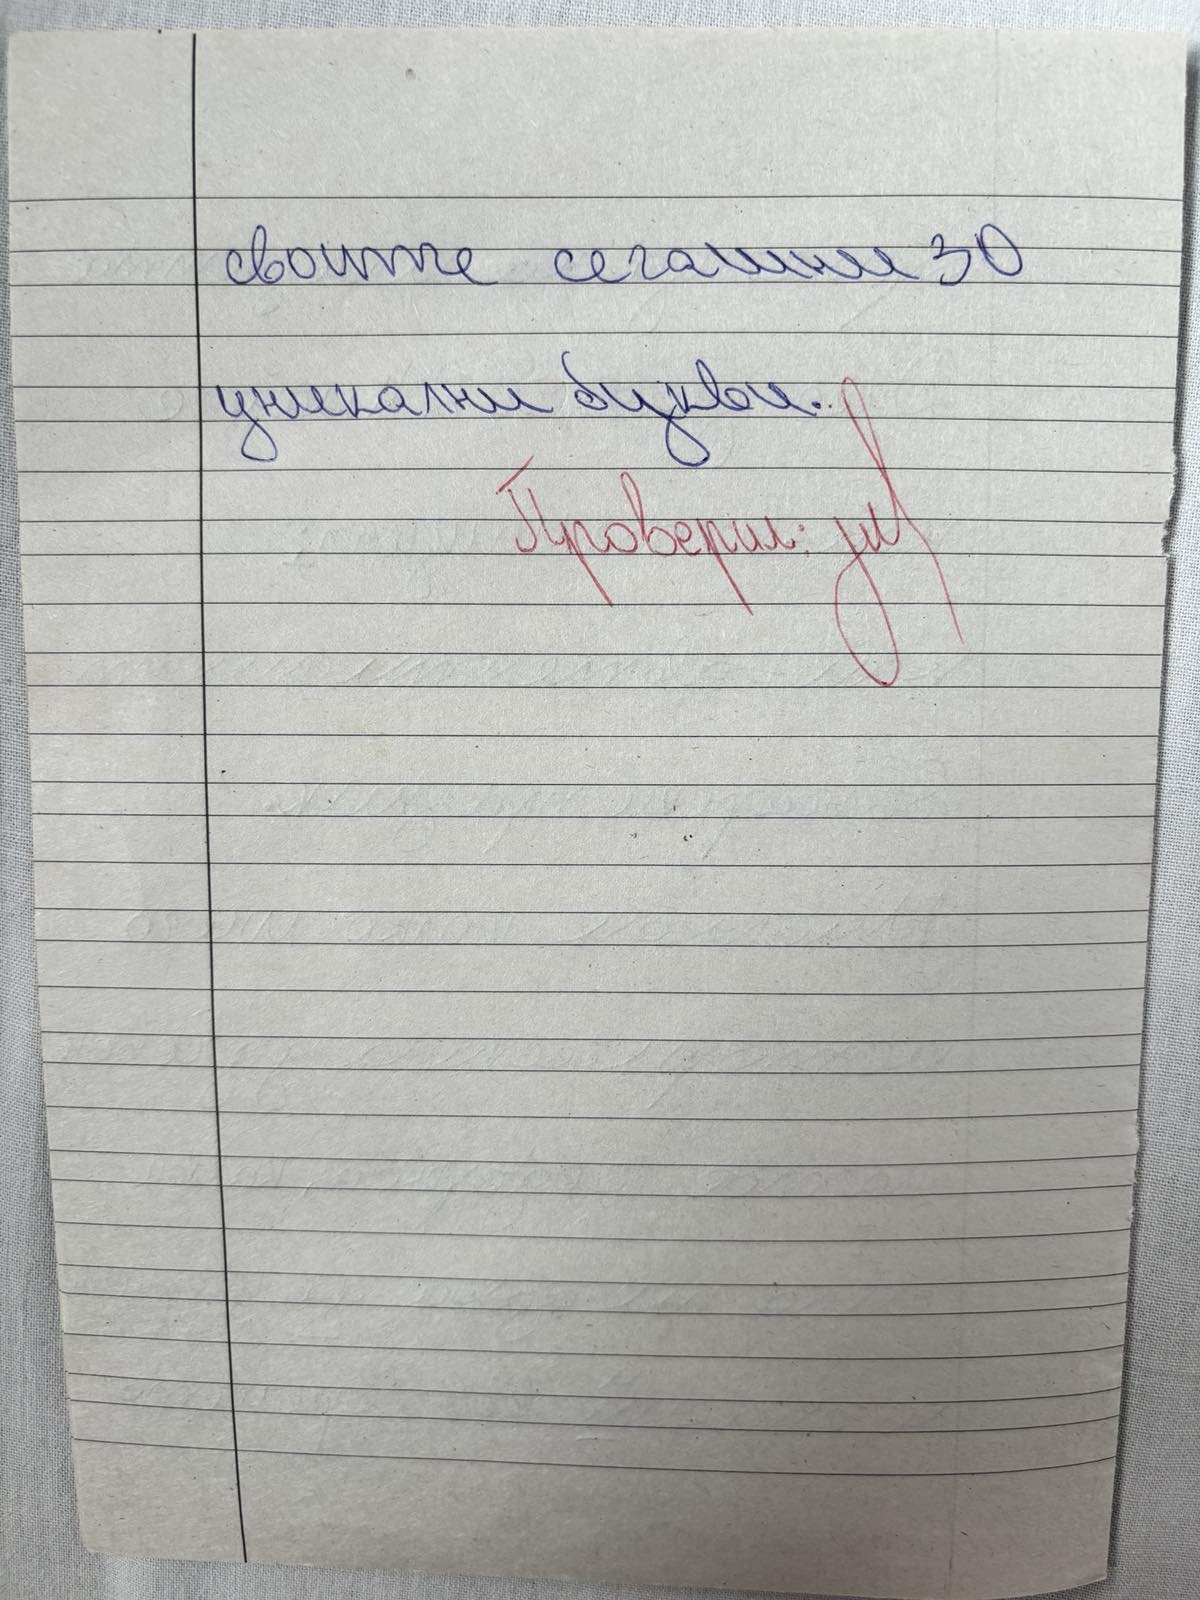 своите сегашни 30
уникални букви.
Проверил: